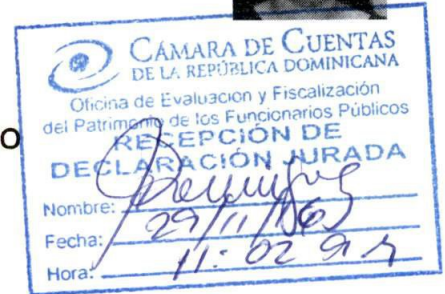 CÁMARA DE CUENTAS
DE LA REPÚBLICA DOMINICANA
Oficina de Evaluación y Fiscalización
del Patrimonio de los Funcionarios Públicos
O
RECEPCIÓN DE
DECLARACIÓN JURADA
Nombre:
Fecha: 29/11/16
Hora: 11:02